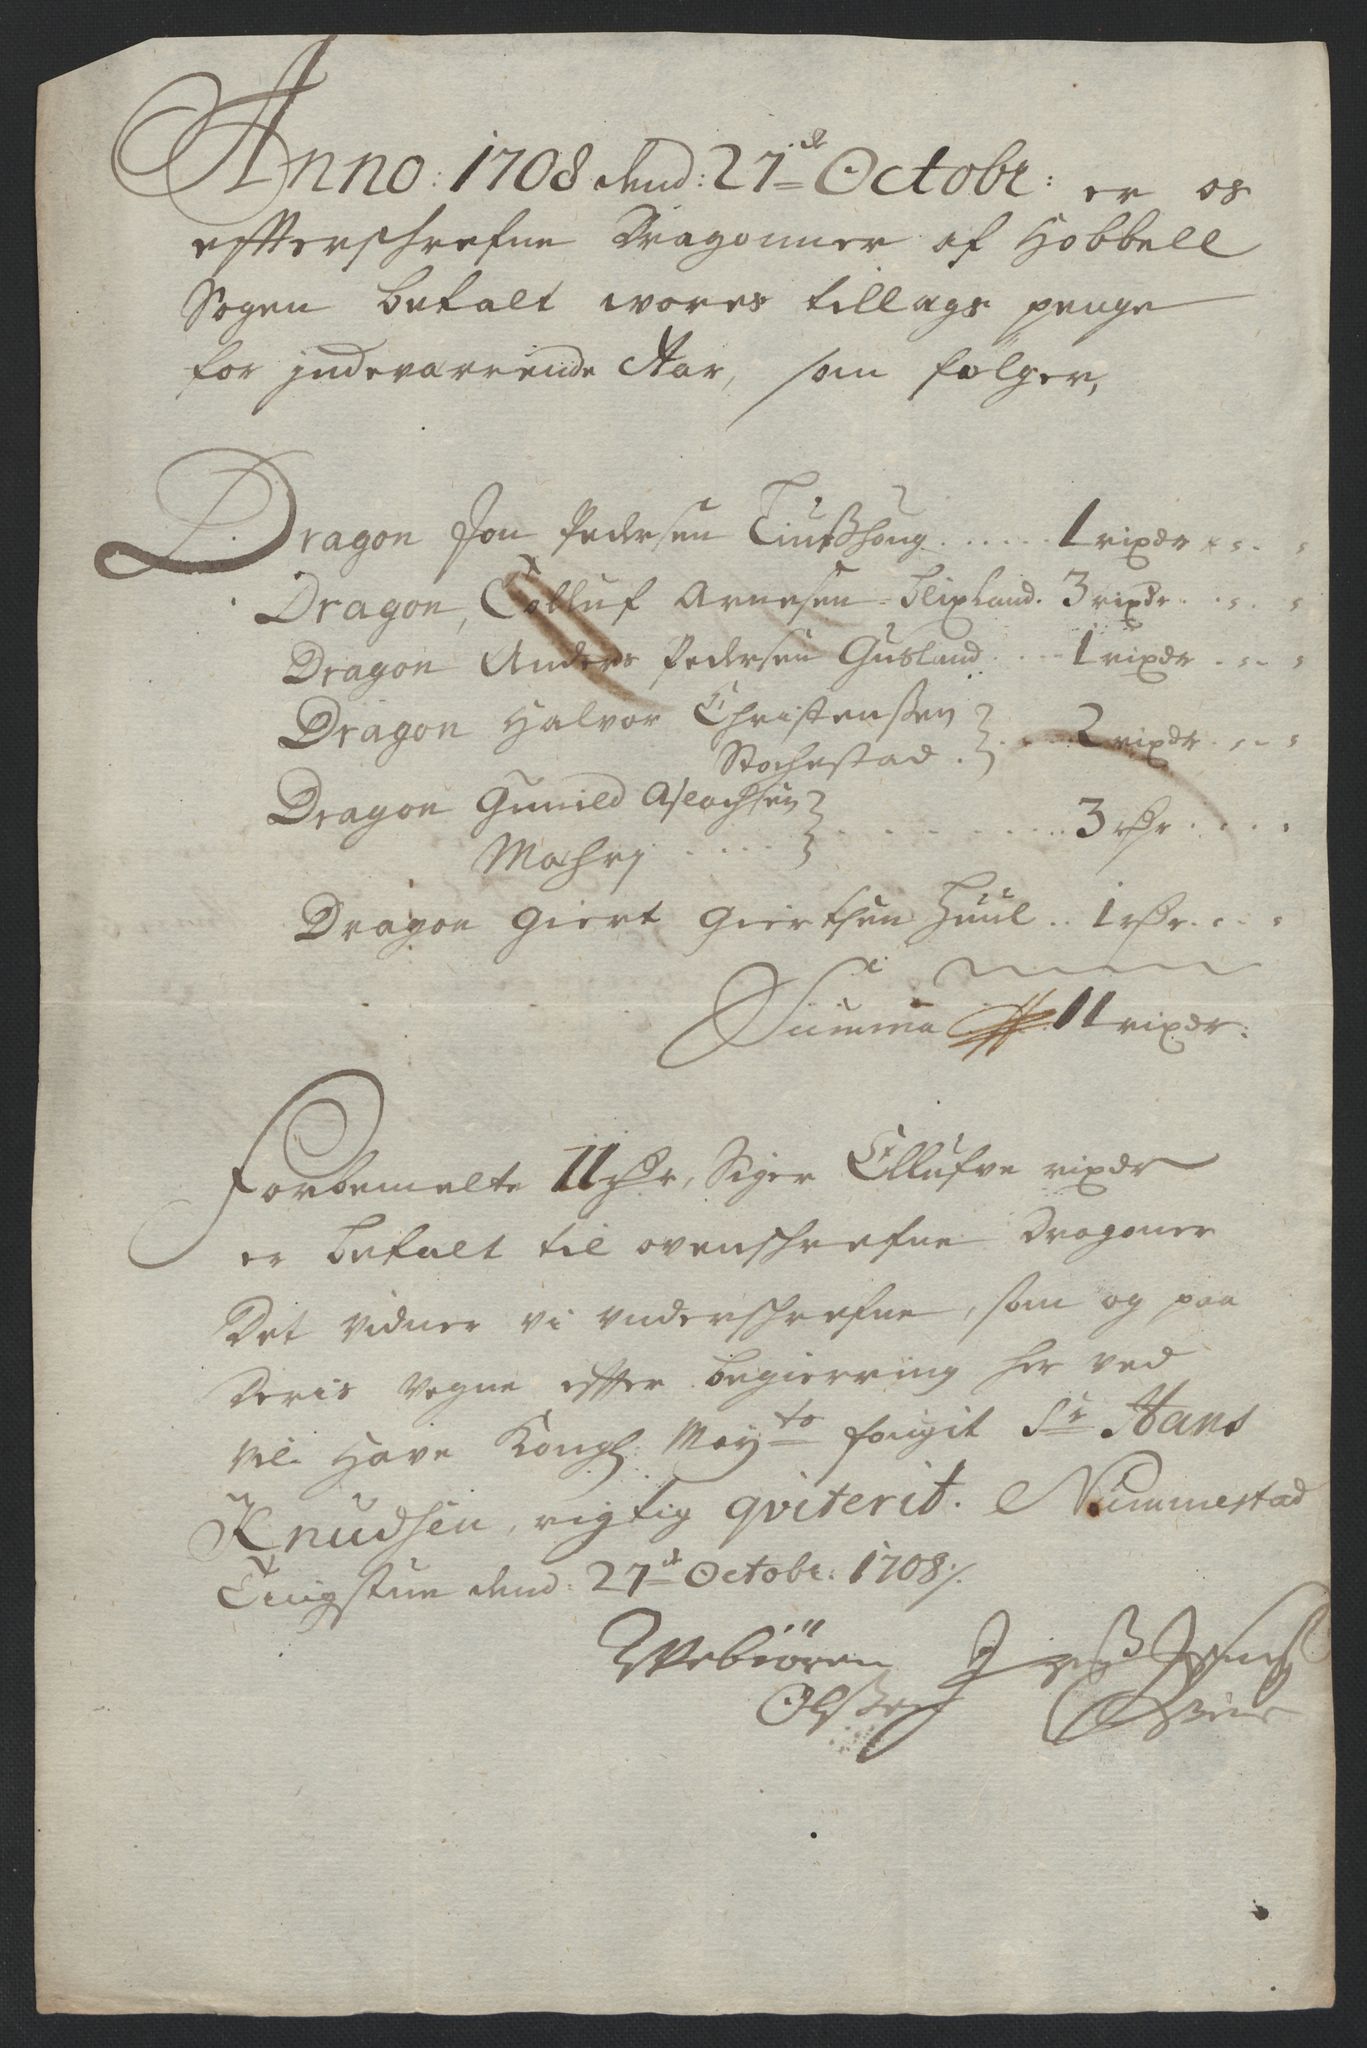 Anno: 1708 dend: 27de Octobr: er os
effterschrefne Dragonner af Hobbell
Sogen betalt wores tillags penge
for jndeværrende Aar, som følger,
Dragon Jon Pedersen 1 rixdr
Dragon, Arnesen Blixland. 3 rixdr
Dragon Anders Pedersen Gusland 1 rixdr
Dragon Halvor Christenßen
Stochestad 2 rixdr
Dragon Gunild Aslachsen
3 rdr
Dragon Giert Giertsen Huul 1 rdr
Summa 11 rixdr:
Forbemelte 11 rdr, Siger Ellufve rixdr
er betalt til ovenschrefne Dragoner
Det vidner vi underschrefne, som og paa
Deris vegne effter begierring her ved
vil have Kongl: Mayts fougit Sr Hans
Knudsen, rigtig qviterit. Nummestad
Tingstue dend: 27de Octobr: 1708 ./.
Webiören
Olßen